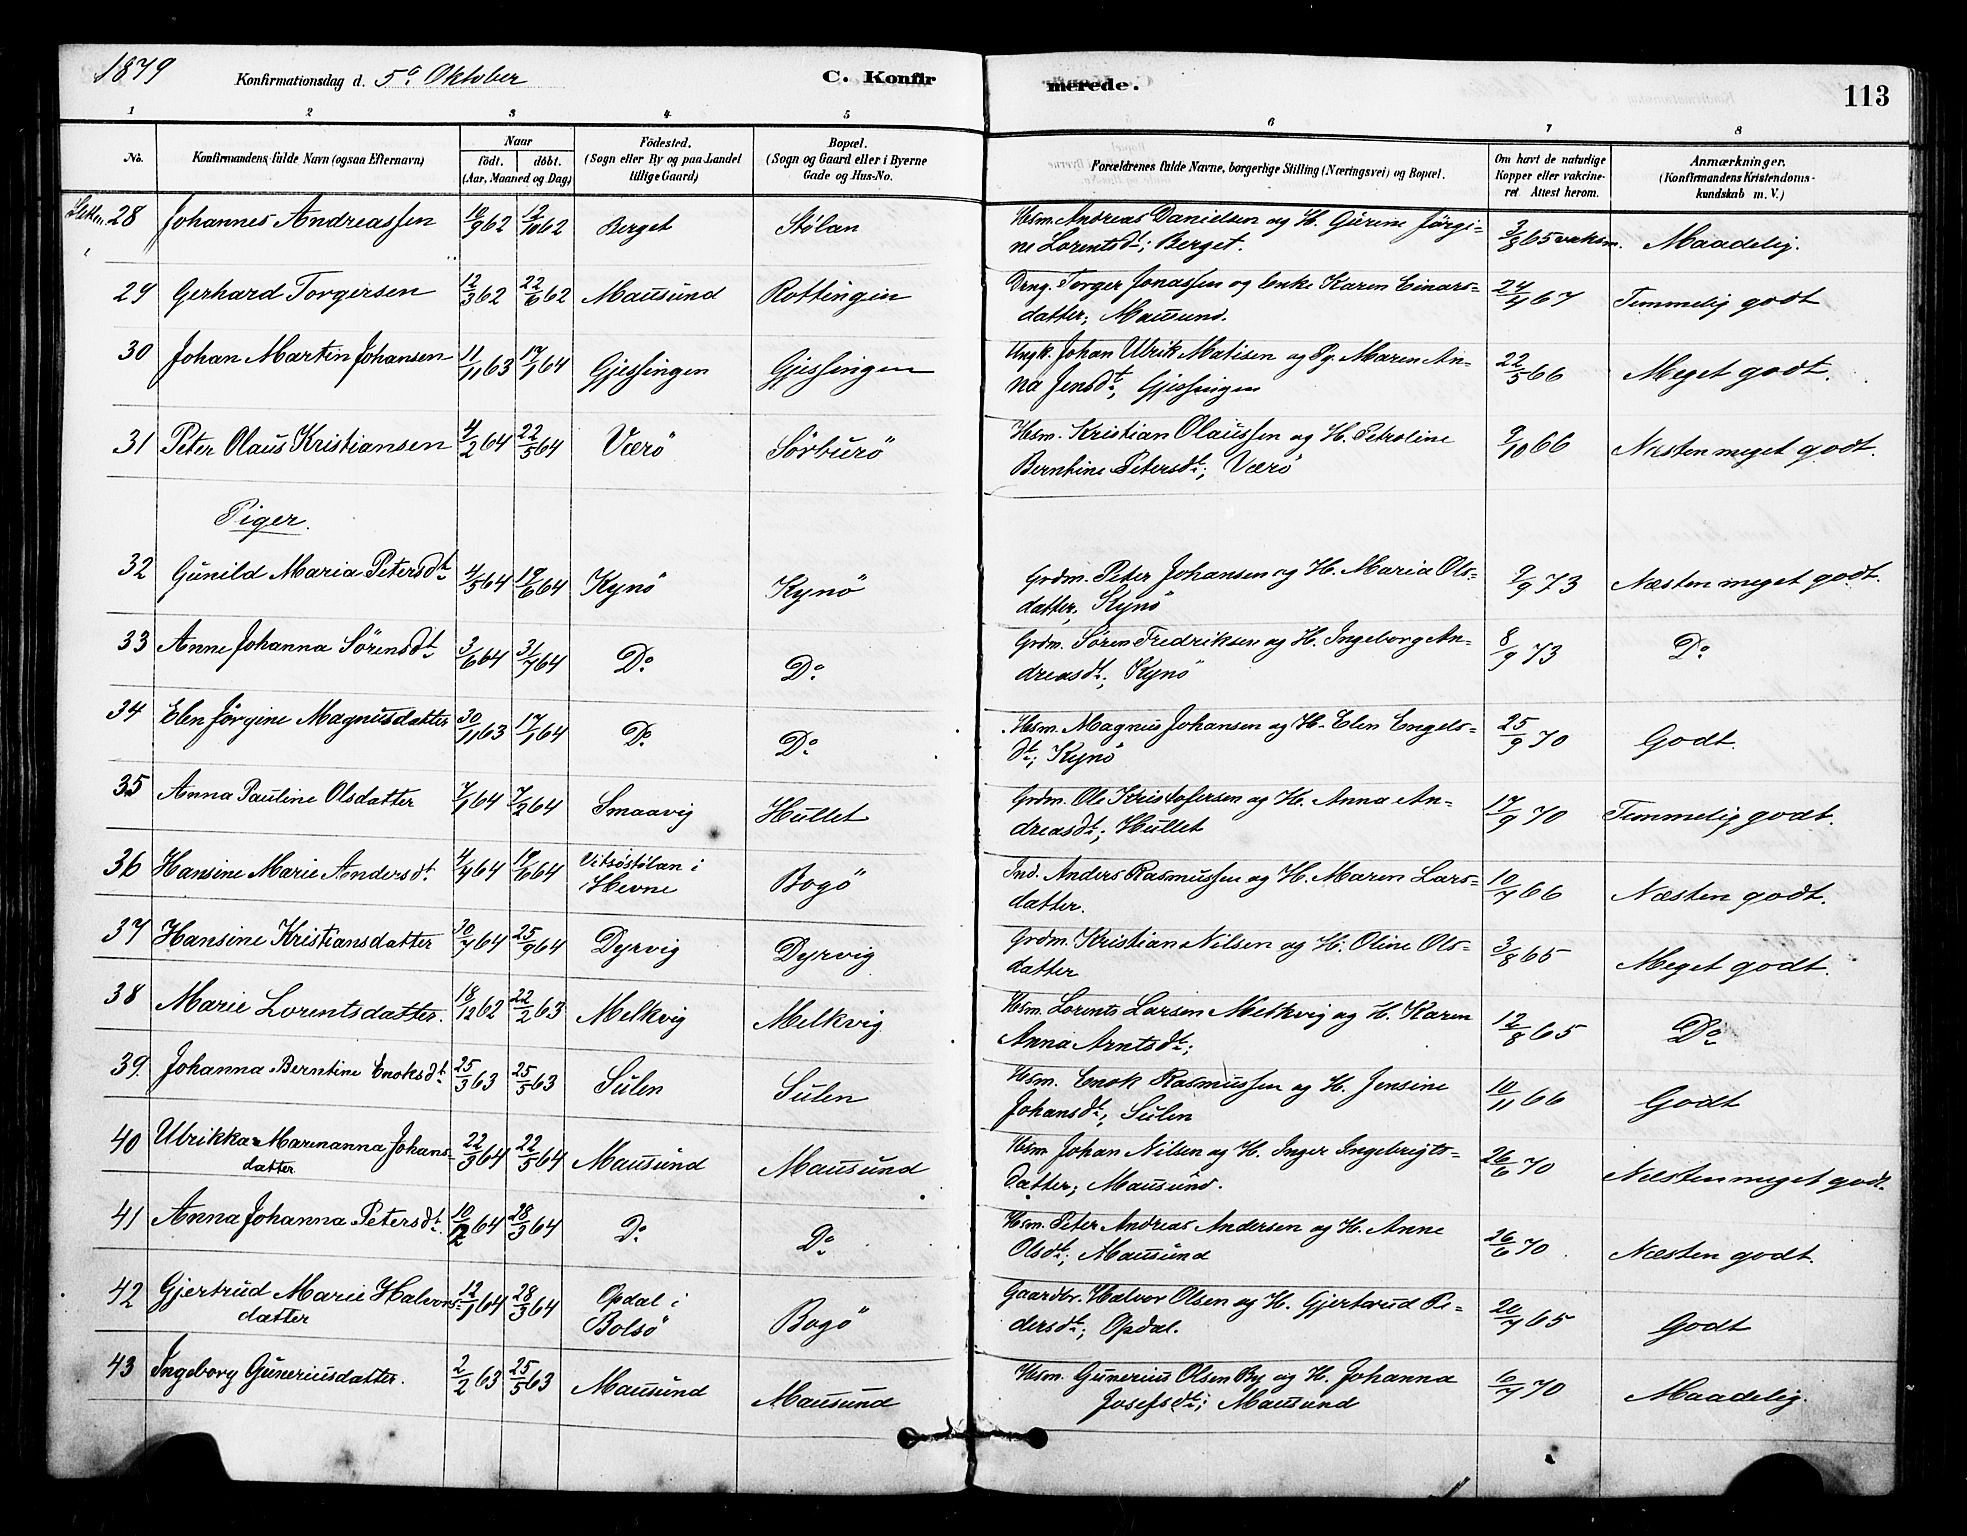 1879 Konfirmationsdag d. 5te Oktober C. Konfirmerede. 113
1 2 3 4 5 6 7 8
No. Konfirmandens fulde Navn (ogsaa Efternavn) Naar født. døbt. (Aar, Maaned og Dag) Fødested. (Sogn eller By og paa Landet tillige Gaard) Bopæl. (Sogn og Gaard eller i Byerne Gade og Hus-No. Forældrenes fulde Navne, borgerlige Stilling (Næringsvei) og Bopæl. Om havt de naturlige Kopper eller vakcineret. Attest herom. Anmærkninger. (Konfirmandens Kristendomskundskab m. V.)
28 Johannes Andreassen 10/9 62 12/10 62 Berget Stølan Hsm. Andreas Danielsen og H. Gurine Jørgine Lorentsdt; Berget. 3/8 65 vaksin. Maadelig.
29 Gerhard Torgersen 12/3 62 22/6 62 Mausund Rottingen Drng. Torger Jonassen og Enke Karen Einarsdatter; Mausund. 24/4 67 Temmelig godt
30 Johan Martin Johansen 11/11 63 17/1 64 Gjessingen Gjessingen Ungk. Johan Ulrik Matisen og Pg. Maren Anna Jensdt, Gjessingen 22/5 66 Meget godt.
31 Peter Olaus Kristiansen 4/2 64 22/5 64 Værö Sörburö Hsm. Kristian Olaussen og H. Petroline Berntine Petersdt; Værö 9/10 66 Næsten meget godt.
Piger.
32 Gunild Maria Petersdt 4/5 64 19/6 64 Kynö Kynö Grdm. Peter Johansen og H. Maria Olsdatter, Kynö 9/9 73 Næsten meget godt.
33 Anne Johanna Sörensdt 3/6 64 31/7 64 Do Do Grdm. Søren Fredriksen og H. Ingeborg Andreasdt; Kynö 8/9 73 Do
34 Elen Jørgine Magnusdatter 30/11 63 17/1 64 Do Do Hsm. Magnus Johansen og H. Elen Engelsdt; Kynö 25/9 70 Godt.
35 Anna Pauline Olsdatter 7/1 64 7/2 64 Smaavig Hullet Grdm. Ole Kristofersen og H. Anna Andreasdt; Hullet 17/9 70 Temmelig godt.
36 Hansine Marie Andersdt. 4/4 64 19/6 64 Vitsøstølan i Hevne Bogö Ind. Anders Rasmussen og H. Maren Larsdatter. 10/7 66 Næsten godt.
37 Hansine Kristiansdatter 10/7 64 25/9 64 Dyrvig Dyrvig Grdm. Kristian Nilsen og H. Oline Olsdatter 3/8 65 Meget godt.
38 Marie Lorentsdatter. 18/12 62 22/2 63 Melkvig Melkvig Hsm. Lorents Larsen Melkvig og H. Karen Anna Arntsdt; 12/8 65 Do
39. Johanna Berntine Enoksdt. 25/3 63 25/5 63 Sulen Sulen Hsm. Enok Rasmussen og H. Jensine Johansdt; Sulen 10/11 66 Godt
40 Ulrikka Marenanna Johansdatter 22/3 64 22/5 64 Mausund Mausund Hsm. Johan Nilsen og H. Inger Ingebrigtsdatter; Mausund. 26/6 70 Næsten meget godt.
41 Anna Johanna Petersdt. 10/2 64 28/3 64 Do Do Hsm. Peter Andreas Andersen og H. Anne Olsdt; Mausund 26/6 70 Næsten godt.
42 Gjertrud Marie Halvorsdatter 12/1 64 28/3 64 Opdal i Bolsö Bogö Gaardbr. Halvor Olsen og H. Gjertrud Pedersdt; Opdal. 20/7 65 Godt
43 Ingeborg Guneriusdatter. 2/2 63 25/5 63 Mausund Mausund Hsm. Gunerius Olsen By og H. Johanna Josefsdt; Mausund 6/7 70 Maadelig.